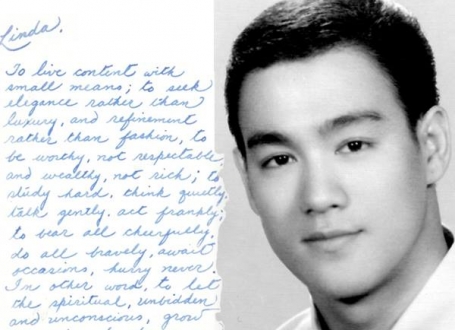 Linda,
To live content with
small means; to seek
elegance rather than
luxury, and refinement
rather than fashion, to
be worthy, not respectable
and wealthy, not rich; to
study hard, think quietly,
talk gently, act frankly;
to bear all cheerfully,
do all bravely, await
occasions, hurry never.
In other word, to let
the spiritual, unbidden
and unconscious, grow